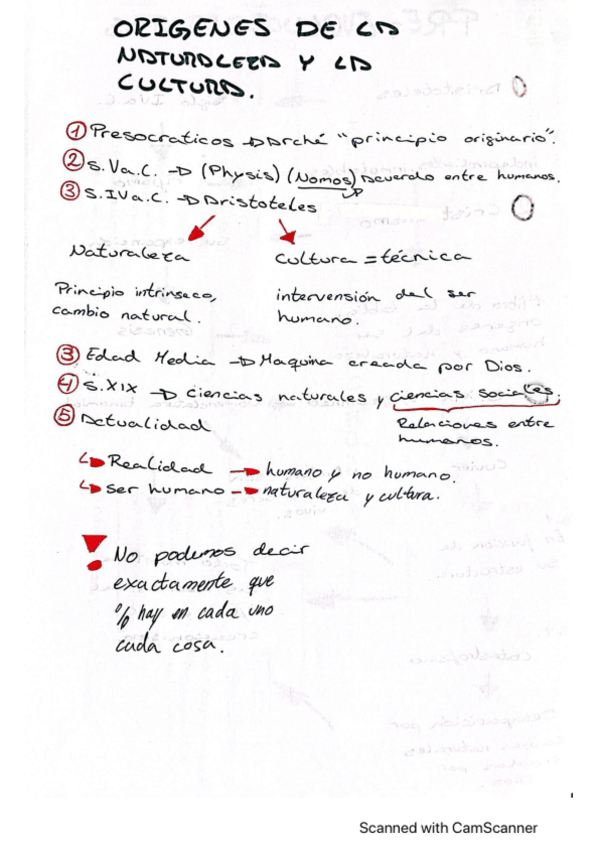 ORIGENES DE LA
NATURALEZA Y LA
CULTURA.
① Presocraticos → Arché "principio originario".
② S.Va.C. → (Physis) (Nomos) Acuerdo entre humanos.
③ S.IVa.C. → Aristoteles
Naturaleza
Cultura = técnica
Principio intrinseco,
cambio natural.
intervensión del ser
humano.
③ Edad Media → Maquina creada por Dios.
④ S.XIX → Ciencias naturales y ciencias sociales.
⑤ Actualidad
Relaciones entre
humanos.
↳ Realidad → humano y no humano.
↳ ser humano → naturaleza y cultura.
! No podemos decir
exactamente que
% hay en cada uno
cada cosa.
Scanned with CamScanner